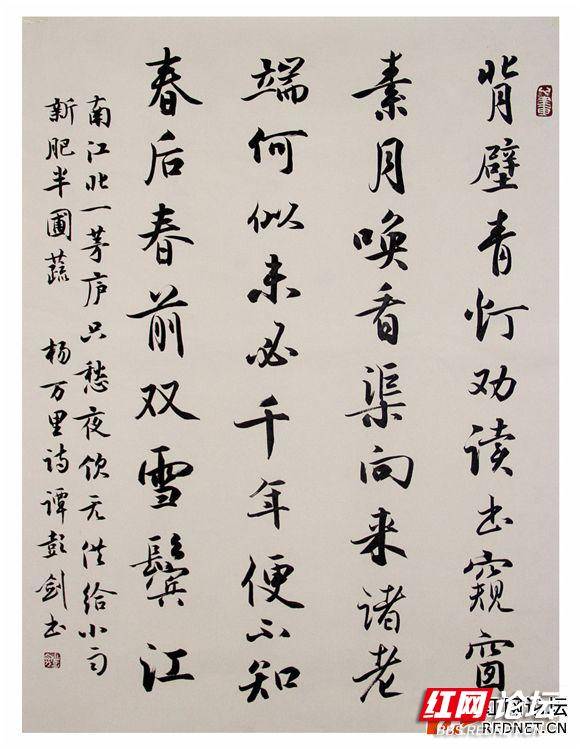 背壁青灯劝读书窥窗
素月唤看渠向来诸老
端何似未必千年便不知
春后春前双雪鬓江
南江北一茅庐只愁夜饮无供给小雨
新肥半圃蔬 杨万里诗谭彭剑书
红网论坛
红网论坛
BBS.REDNET.CN
REDNET.CN